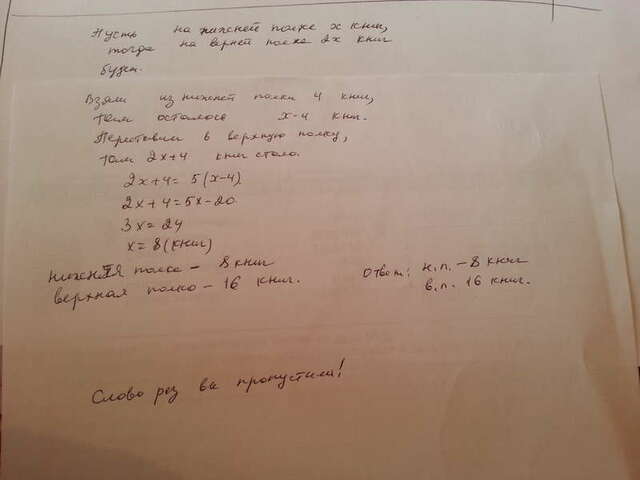 Пусть на нижней полке x книг,
тогда на верней полке 2x книг
будет.
Взяли из нижней полки 4 книг,
там осталось x-4 книг.
Переставим в верхную полку,
там 2x+4 книг стало.
2x+4= 5(x-4)
2x+4=5x-20
3x=24
x=8(книг)
нижняя полка - 8 книг
верхная полка - 16 книг.
Ответ: н.п. - 8 книг
в.п. 16 книг.
Слово раз вы пропустили!